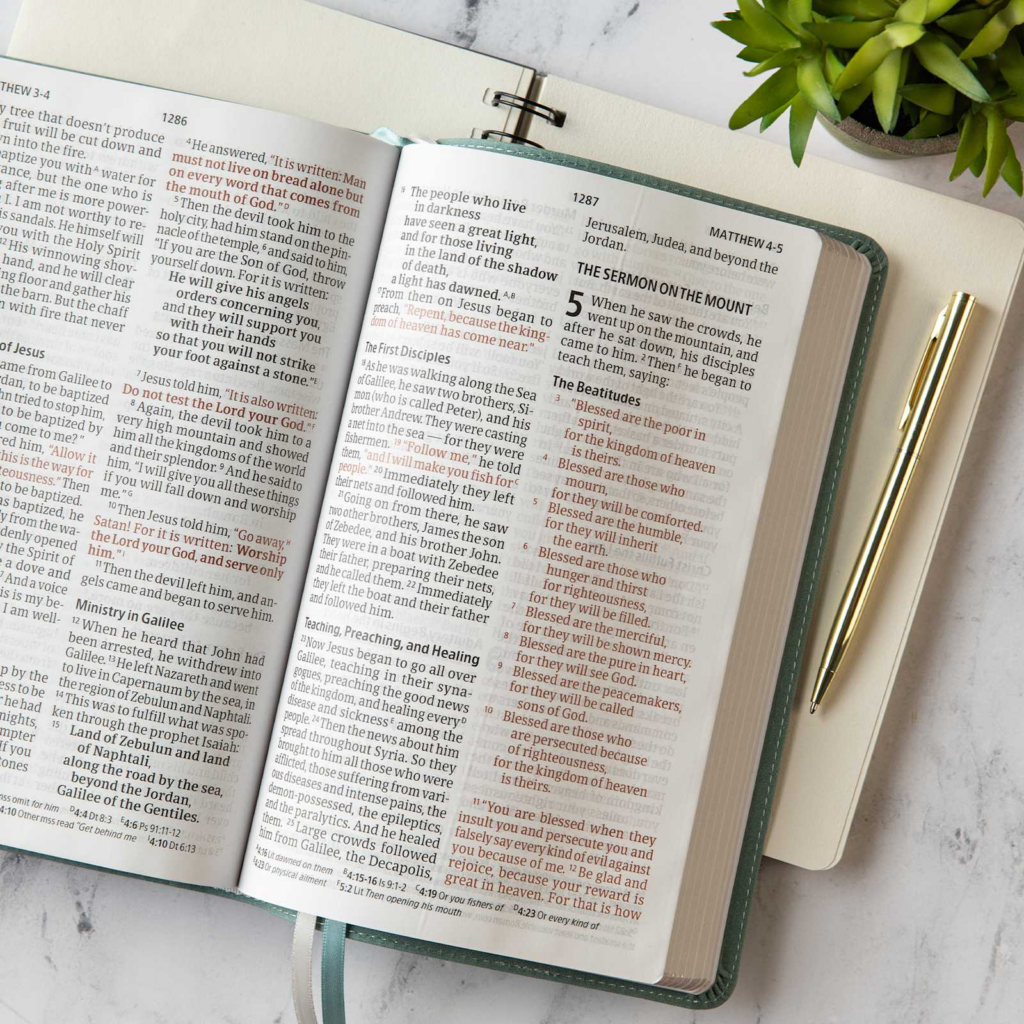 THEW 3-4
1286
y tree that doesn't produce
fruit will be cut down and
n into the fire.
aptize you with ᴬ water for
ance, but the one who is
after me is more power-
I. I am not worthy to re-
is sandals. He himself will
you with the Holy Spirit
¹² His winnowing shov-
hand, and he will clear
ing floor and gather his
the barn. But the chaff
with fire that never
of Jesus
ame from Galilee to
rdan, to be baptized
hn tried to stop him,
to be baptized by
come to me?"
red him, "Allow it
this is the way for
teousness." Then
to be baptized.
as baptized, he
y from the wa-
denly opened
e Spirit of
a dove and
And a voice
is is my be-
I am well-
p by the
ess to be
r he had
nights,
mpter
If you
tones
⁴ He answered, "It is written: Man
must not live on bread alone but
on every word that comes from
the mouth of God." ᴰ
⁵ Then the devil took him to the
holy city, had him stand on the pin-
nacle of the temple, ⁶ and said to him,
"If you are the Son of God, throw
yourself down. For it is written:
He will give his angels
orders concerning you,
and they will support you
with their hands
so that you will not strike
your foot against a stone." ᴱ
⁷ Jesus told him, "It is also written:
Do not test the Lord your God." ᶠ
⁸ Again, the devil took him to a
very high mountain and showed
him all the kingdoms of the world
and their splendor. ⁹ And he said to
him, "I will give you all these things
if you will fall down and worship
me." ᴳ
¹⁰ Then Jesus told him, "Go away,
Satan! For it is written: Worship
the Lord your God, and serve only
him."
¹¹ Then the devil left him, and an-
gels came and began to serve him.
Ministry in Galilee
¹² When he heard that John had
been arrested, he withdrew into
Galilee. ¹³ He left Nazareth and went
to live in Capernaum by the sea, in
the region of Zebulun and Naphtali.
¹⁴ This was to fulfill what was spo-
ken through the prophet Isaiah:
¹⁵ Land of Zebulun and land
of Naphtali,
along the road by the sea,
beyond the Jordan,
Galilee of the Gentiles.
mss omit for him ᴰ4:4 Dt 8:3 ᴱ4:6 Ps 91:11-12
4:10 Other mss read "Get behind me 4:10 Dt 6:13
1287
MATTHEW 4-5
¹⁶ The people who live
in darkness
have seen a great light,
and for those living
in the land of the shadow
of death,
a light has dawned. ᴬ,ᴮ
¹⁷ From then on Jesus began to
preach, "Repent, because the king-
dom of heaven has come near."
The First Disciples
¹⁸ As he was walking along the Sea
of Galilee, he saw two brothers, Si-
mon (who is called Peter), and his
brother Andrew. They were casting
a net into the sea — for they were
fishermen. ¹⁹ "Follow me," he told
them, "and I will make you fish for ᶜ
people." ²⁰ Immediately they left
their nets and followed him.
²¹ Going on from there, he saw
two other brothers, James the son
of Zebedee, and his brother John.
They were in a boat with Zebedee
their father, preparing their nets,
and he called them. ²² Immediately
they left the boat and their father
and followed him.
Teaching, Preaching, and Healing
²³ Now Jesus began to go all over
Galilee, teaching in their syna-
gogues, preaching the good news
of the kingdom, and healing every ᴰ
disease and sickness ᴱ among the
people. ²⁴ Then the news about him
spread throughout Syria. So they
brought to him all those who were
afflicted, those suffering from vari-
ous diseases and intense pains, the
demon-possessed, the epileptics,
and the paralytics. And he healed
them. ²⁵ Large crowds followed
him from Galilee, the Decapolis,
Jerusalem, Judea, and beyond the
Jordan.
THE SERMON ON THE MOUNT
5 When he saw the crowds, he
went up on the mountain, and
after he sat down, his disciples
came to him. ² Then ᶠ he began to
teach them, saying:
The Beatitudes
³ "Blessed are the poor in
spirit,
for the kingdom of heaven
is theirs.
⁴ Blessed are those who
mourn,
for they will be comforted.
⁵ Blessed are the humble,
for they will inherit
the earth.
⁶ Blessed are those who
hunger and thirst
for righteousness,
for they will be filled.
⁷ Blessed are the merciful,
for they will be shown mercy.
⁸ Blessed are the pure in heart,
for they will see God.
⁹ Blessed are the peacemakers,
for they will be called
sons of God.
¹⁰ Blessed are those who
are persecuted because
of righteousness,
for the kingdom of heaven
is theirs.
¹¹ "You are blessed when they
insult you and persecute you and
falsely say every kind of evil against
you because of me. ¹² Be glad and
rejoice, because your reward is
great in heaven. For that is how
ᴬ4:16 Lit dawned on them ᴮ4:15-16 Is 9:1-2 ᶜ4:19 Or you fishers of ᴰ4:23 Or every kind of
ᴱ4:23 Or physical ailment ᶠ5:2 Lit Then opening his mouth